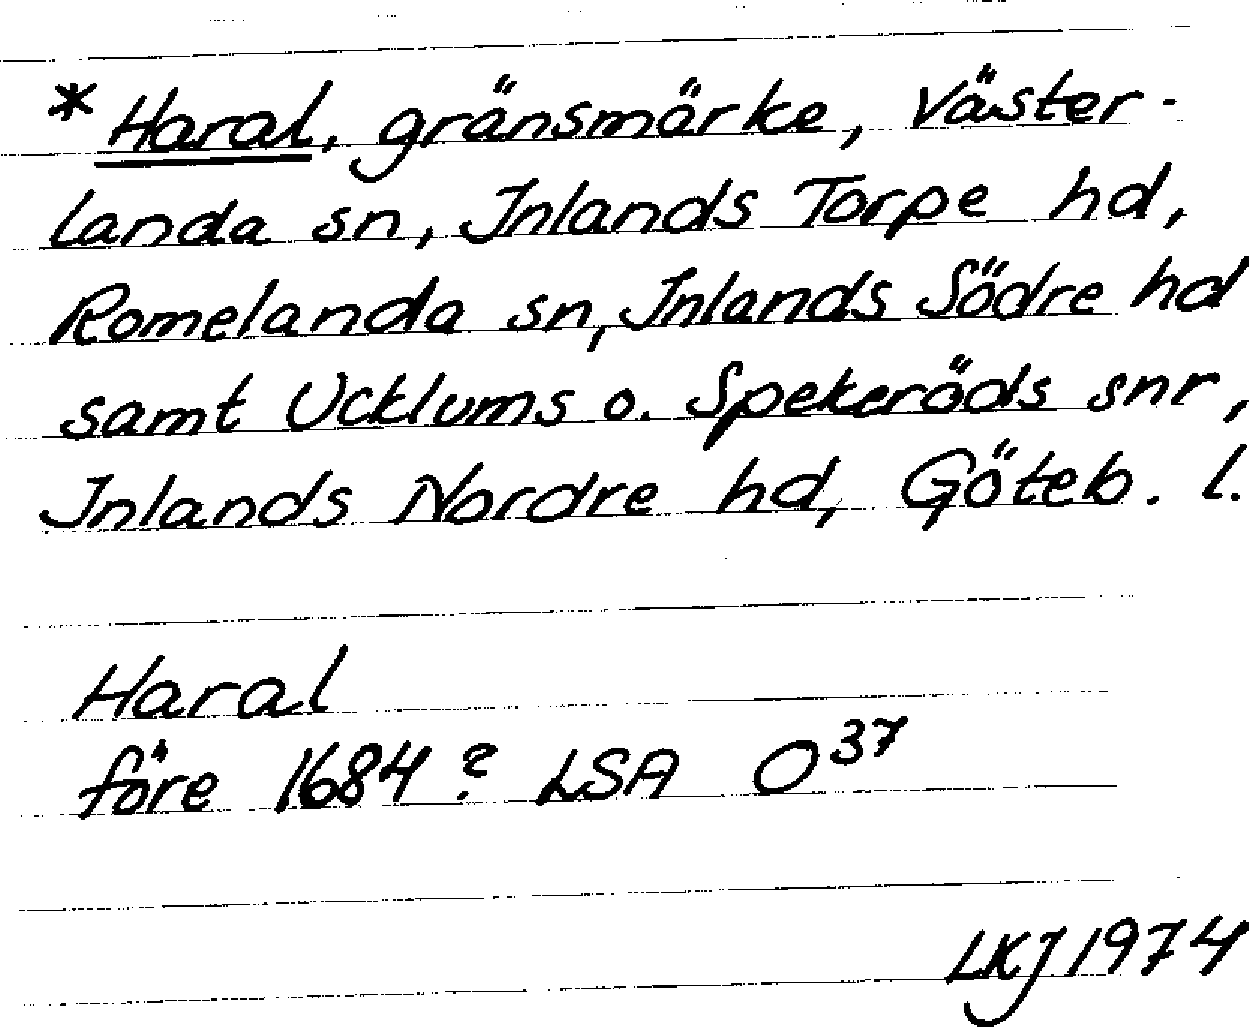 * Haral, gränsmärke, Väster-
landa sn, Inlands Torpe hd,
Romelanda sn, Inlands Södre hd
samt Ucklums o. Spekeröds snr,
Inlands Nordre hd, Göteb. l.
Haral
före 1684? LSA O³⁷
LKJ 1974